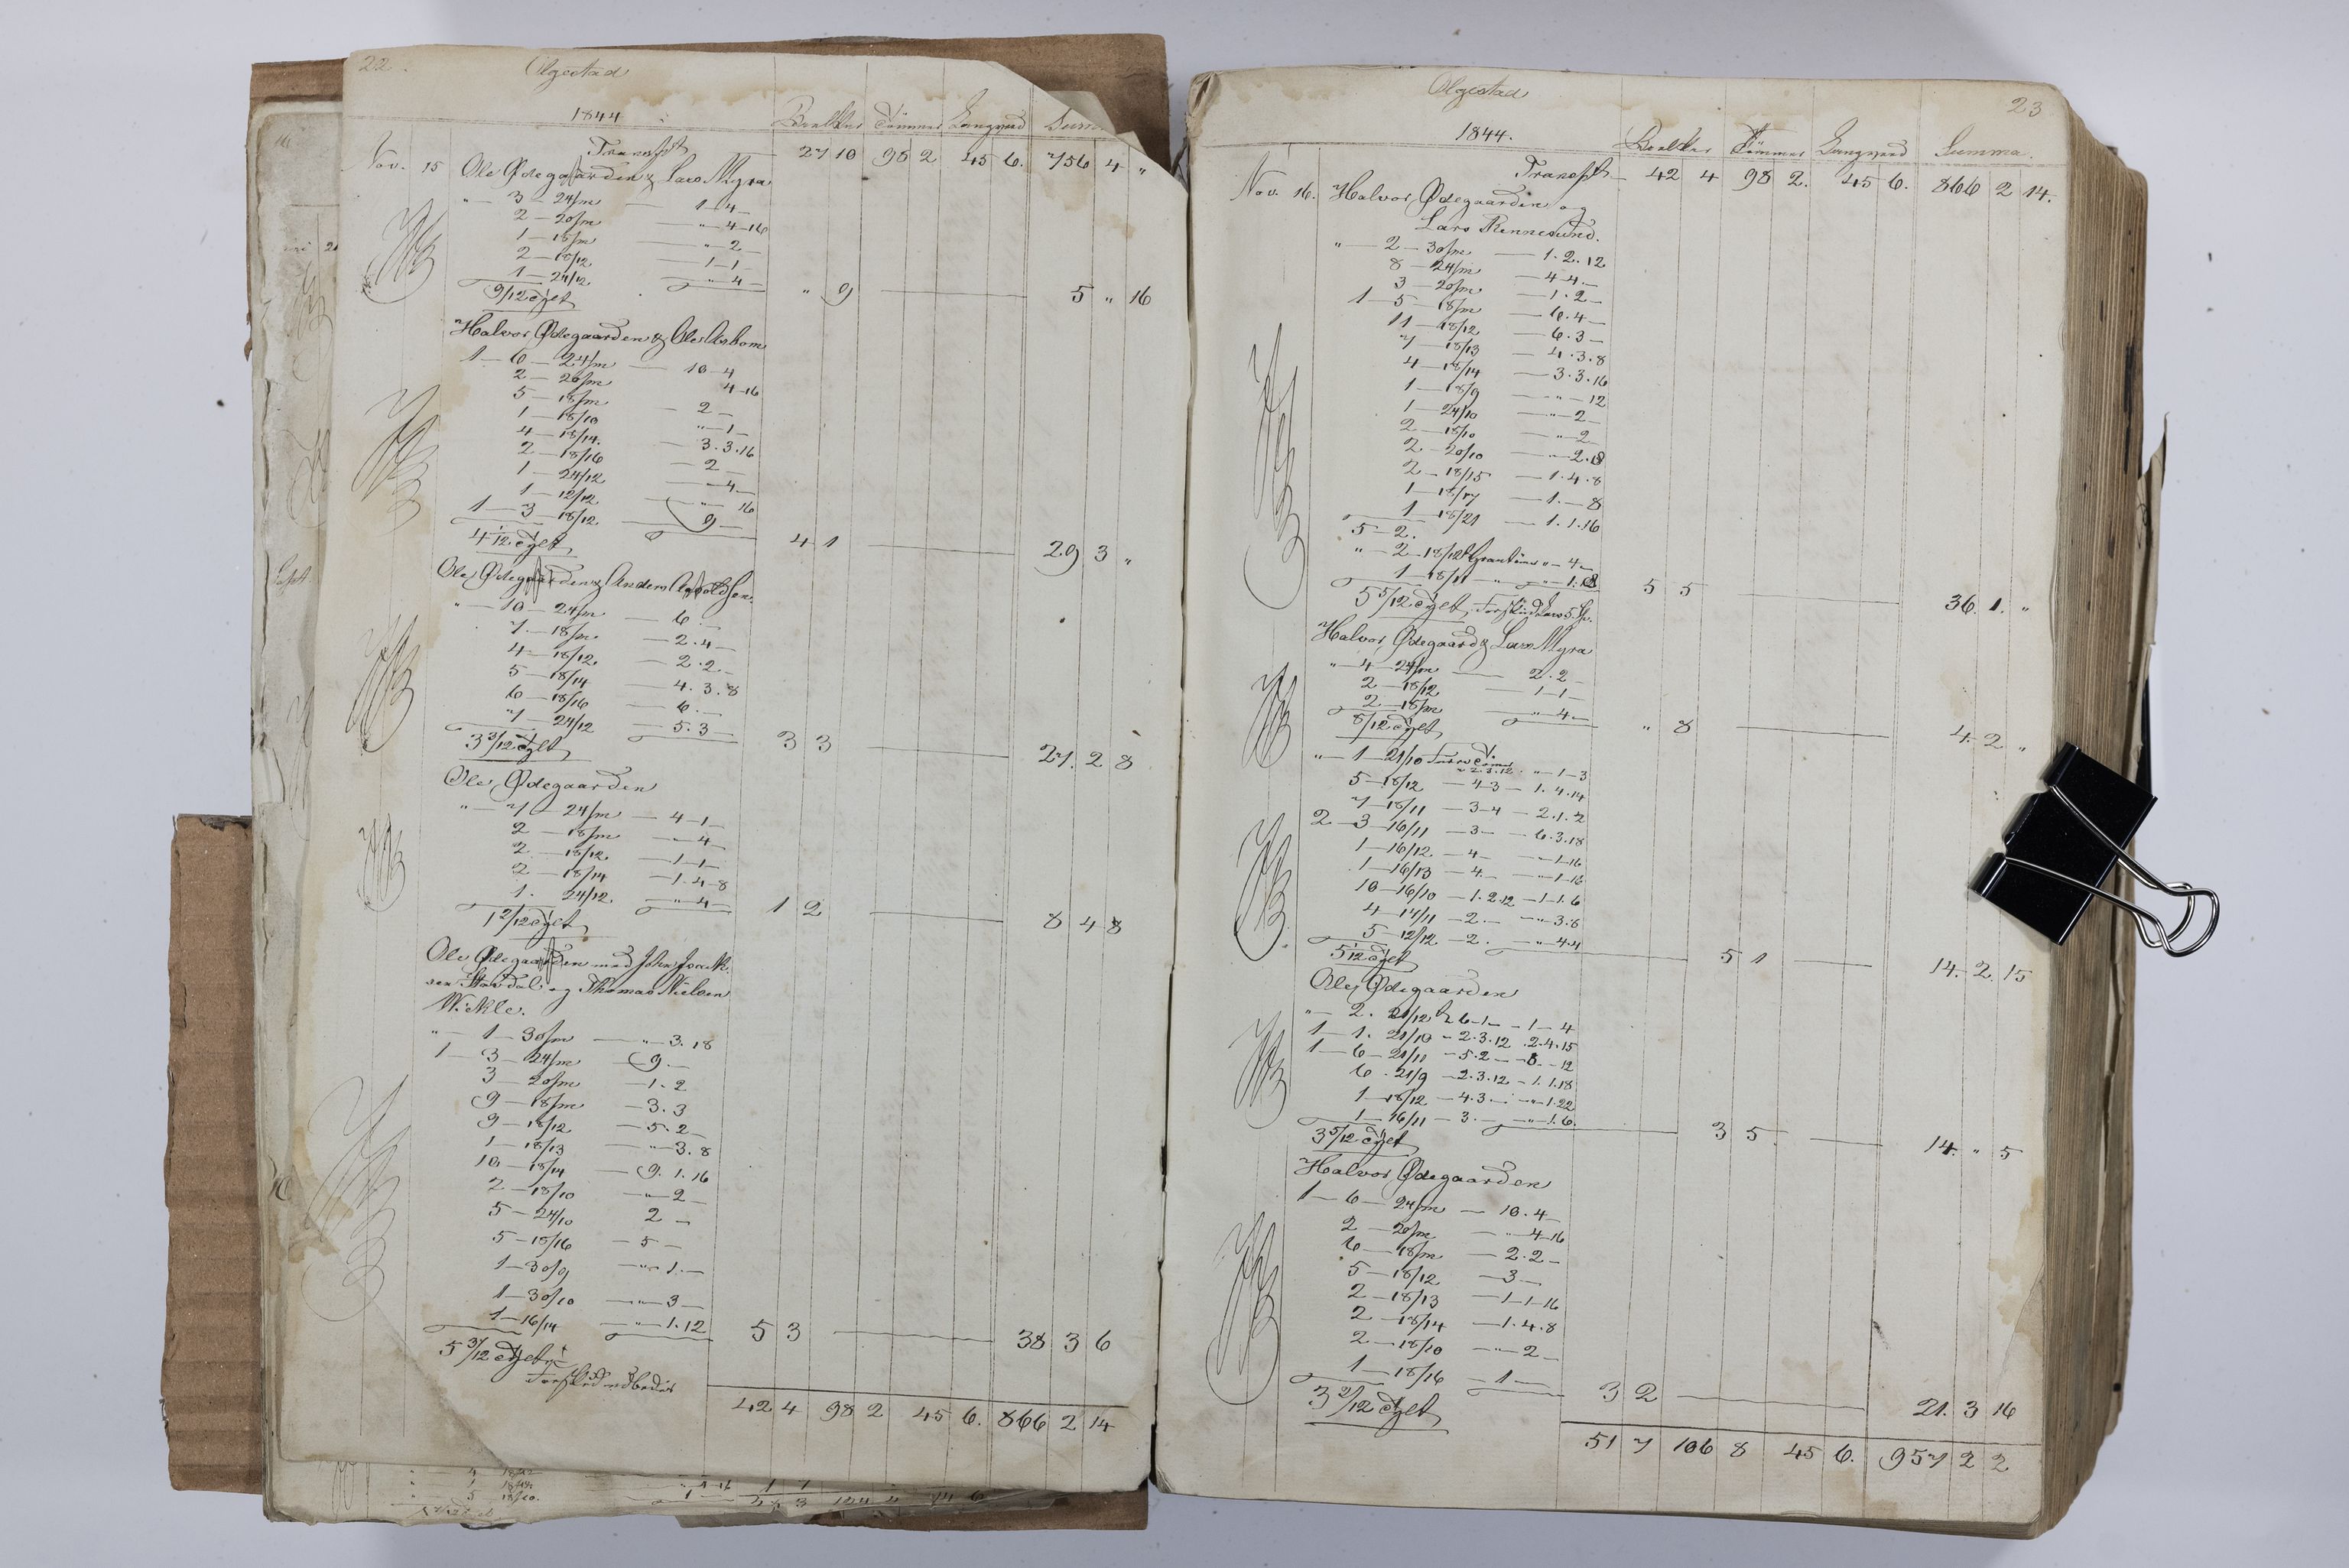 22.
Olgestad
1844
Bielker Tømmer Langved Summa
Transpt 27 10 98 2 45 6. 756 4 "
Nov. 15 Ole Ødegaarden & Lars Myra
" — 3 — 24/m — 1 — 4 —
2 — 20/m " — 4 — 16
1 — 18/m — " — 2 —
2 — 18/12 — 1 — 1 —
1 — 24/12 — " — 4 —
9/12 Tylt " 9 — 5 " 16
Halvor Ødegaarden & Ole Asbom
1 — 6 — 24/m — 10 — 4
2 — 20/m 4 — 16
5 — 18/m — 2 —
1 — 18/10 — " — 1 —
4 — 18/14. — 3. 3. 16
2 — 18/16 — 2 —
1 — 24/12 — " — 4 —
1 — 12/12 — " — 16
1 — 3 — 18/12. — 9 —
4 1/12 Tylt 4 1 — 29 3 "
Ole Ødegaarden &
" — 10 — 24/m — 6. —
7. — 18/m — 2. 4 —
4 — 18/12. — 2. 2 —
5 — 18/14 — 4. 3. 8
6 — 18/16 — 6. —
7 — 24/12 — 5. 3 —
3 3/12 Tylt 3 3 — 27. 2 8
Ole Ødegaarden
" — 7 — 24/m — 4 — 1 —
2 — 18/m — " — 4 —
2 — 18/12 — 1 — 1 —
2 — 18/14 — 1. 4 — 8
1. 24/12. — " — 4 —
1 2/12 Tylt 1 2 — 8 4 8
Ole Ødegaarden med John Isaak-
sen Stordal og Thomas Nielsen
Wikle.
" — 1 — 30/m — " — 3. 18
1 — 3 — 24/m — 9. —
3 — 20/m — 1. 2
9 — 18/m — 3. 3
9 — 18/12 — 5. 2 —
1 — 18/13 — " — 3. 8
10 — 18/14 — 9. 1. 16
2 — 18/10 — " — 2 —
5 — 24/10 2 —
5 — 18/16 — 5 —
1 — 30/9 — " — 1. —
1 — 30/10 — " — 3 —
1 — 16/14 — " — 1. 12
5 3/12 Tylt 5 3 — 38 3 6
42 4 98 2 45 6. 866 2 14
Olgestad
23
1844.
Bielker Tømmer Langved Summa.
Transpt — 42 4 98 2. 45 6. 866 2 14.
Nov. 16. Halvor Ødegaarden og
Lars Rinnesund.
" — 2 — 30/m — 1. 2. 12
8 — 24/m — 4 4. —
3 — 20/m — 1. 2 —
1 — 5 — 18/m — 6. 4 —
11 — 18/12 — 6. 3 —
7 — 18/13 — 4. 3. 8
4 — 18/14 — 3. 3. 16
1 — 18/9 — " — 12
1 — 24/10 — " — 2 —
2 — 18/10 — " — 2 —
2 — 20/10 — " — 2. 18
2 — 18/15 — 1. 4. 8
1 — 18/17 — 1. — 8
1 18/21 — 1. 1. 16
5 — 2.
" — 2 — 18/12 Grantømr " — 4 —
1 18/11 — " — " — 1. 18
5 5/12 Tylt 5 5 — 36. 1. "
Halvor Ødegaard & Lars Myra
" — 4 — 24/m — 2. 2 —
2 — 18/12 — 1 — 1 —
2 — 18/m " — 4 —
8/12 Tylt " 8 — 4. 2 "
" — 1 — 21/10 Furutømr
2. 3. 12 " — 1 — 3
5 — 18/12 — 4 3 — 1. 4. 14
7 — 18/11 — 3 — 4 — 2. 1. 2
2 — 3 — 16/11 — 3 — — 6. 3. 18
1 — 16/12 — 4 — — " — 1 — 16
1 — 16/13 — 4. — — " — 1 — 16
10 — 16/10 — 1. 2. 12 — 1 — 1. 6
4 — 14/11 — 2. — — " — 3. 8
5 — 12/12 — 2. — " — 4. 4
5 1/12 Tylt 5 1 — 14. 2. 15
Ole Ødegaarden
" — 2. 21/12 6 — 1 — — 1 — 4
1 — 1. 21/10 — 2. 3. 12 . 2. 4. 15
1 — 6 — 21/11 — 5. 2 — — 8. — 12
6 . 21/9 — 2. 3. 12 — 1. 1. 18
1 — 18/12 — 4. 3 — — " — 1. 22
1 — 16/11 — 3. — — " — 1. 6.
3 5/12 Tylt 3 5. — 14. " 5
Halvor Ødegaarden
1 — 6 — 24/m — 10. 4 —
2 — 20/m — " — 4 — 16
6 — 18/m — 2. 2 —
5 — 18/12 — 3 —
2 — 18/13 — 1 — 1 — 16
2 — 18/14 — 1. 4. 8
2 — 18/10 — " — 2 —
1 — 18/16 — 1 —
3 2/12 Tylt 3 2 — 21. 3 16
51 7 106 8 45 6. 957 2 2